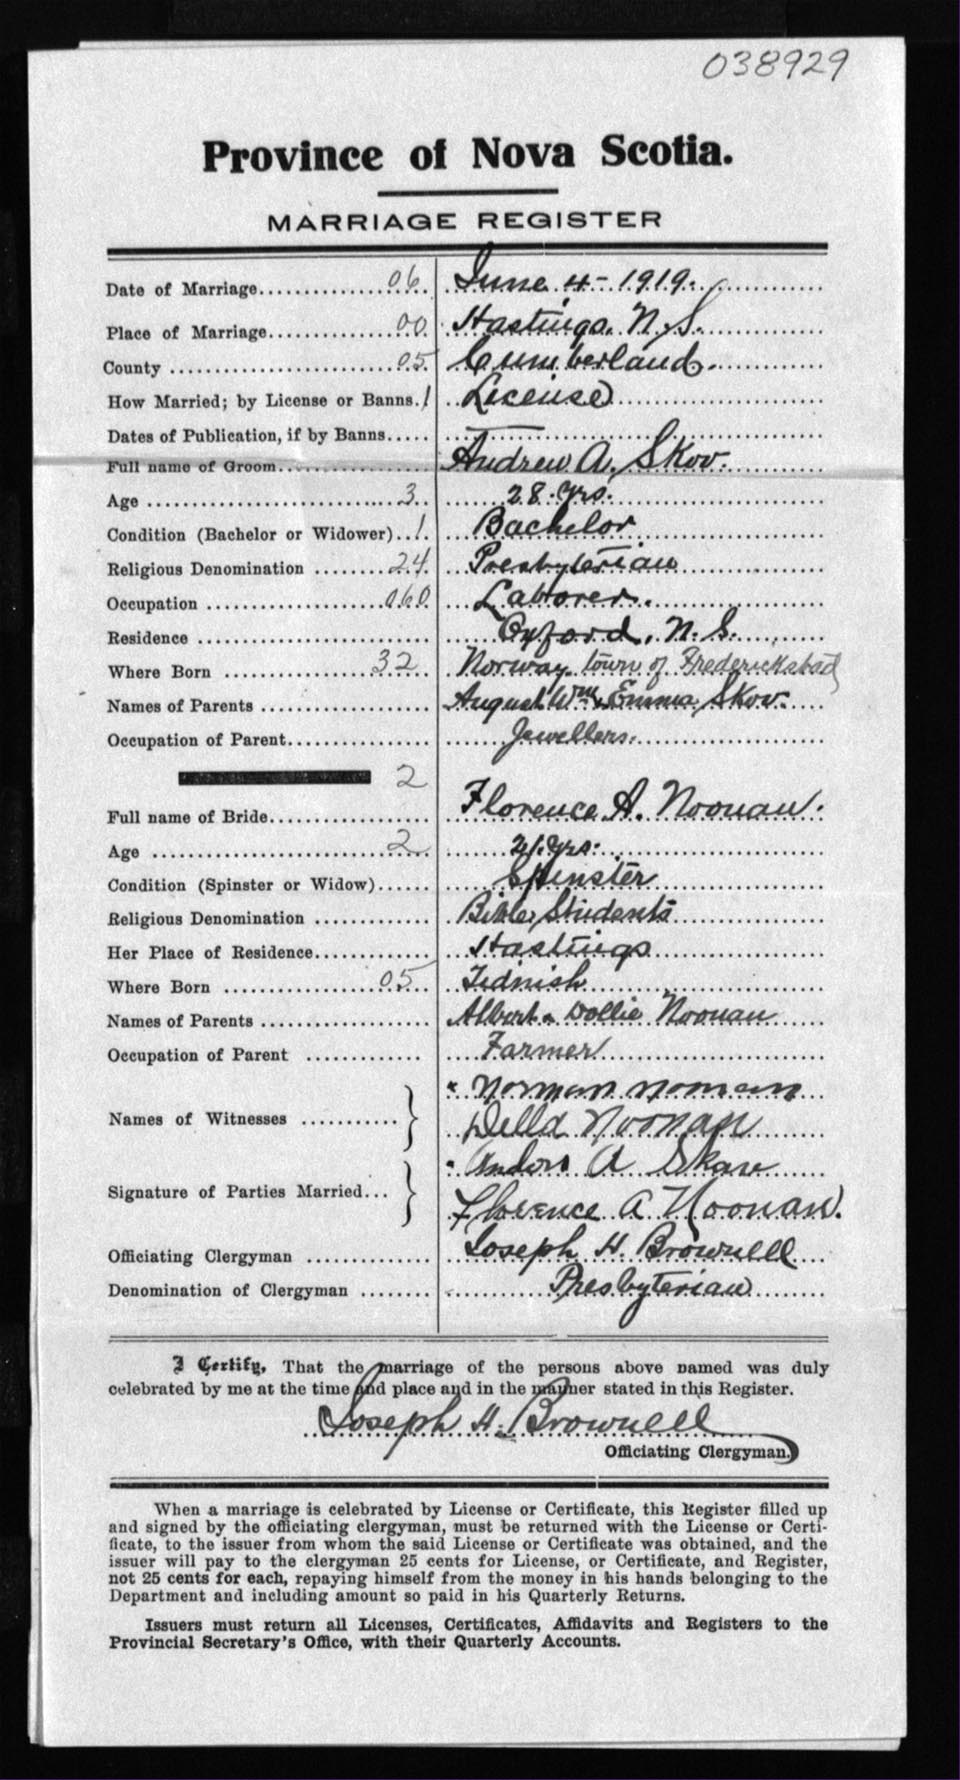 038929
Province of Nova Scotia.
MARRIAGE REGISTER
Date of Marriage 06 June 4 - 1919.
Place of Marriage 00 Hastings. N. S.
County 05 Cumberland.
How Married; by License or Banns. 1 License
Dates of Publication, if by Banns
Full name of Groom Andrew A. Skov.
Age 3 28 yrs.
Condition (Bachelor or Widower) 1 Bachelor
Religious Denomination 24 Presbyterian
Occupation 060 Laborer.
Residence Oxford, N. S.
Where Born 32 Norway town of Fredericksbad
Names of Parents August Wm & Emma Skov.
Occupation of Parent Jewellers.
2
Full name of Bride Florence A. Noonan.
Age 2 21 yrs.
Condition (Spinster or Widow) Spinster
Religious Denomination Bible Students
Her Place of Residence Hastings
Where Born 05 Tidnish
Names of Parents Albert & Dollie Noonan
Occupation of Parent Farmer
Names of Witnesses Norman Noonan
Della Noonan
Signature of Parties Married A Skav
Florence A Noonan.
Officiating Clergyman Joseph H. Brownell
Denomination of Clergyman Presbyterian
I Certify, That the marriage of the persons above named was duly
celebrated by me at the time and place and in the manner stated in this Register.
Joseph H. Brownell
Officiating Clergyman.
When a marriage is celebrated by License or Certificate, this Register filled up
and signed by the officiating clergyman, must be returned with the License or Certi-
ficate, to the issuer from whom the said License or Certificate was obtained, and the
issuer will pay to the clergyman 25 cents for License, or Certificate, and Register,
not 25 cents for each, repaying himself from the money in his hands belonging to the
Department and including amount so paid in his Quarterly Returns.
Issuers must return all Licenses, Certificates, Affidavits and Registers to the
Provincial Secretary's Office, with their Quarterly Accounts.